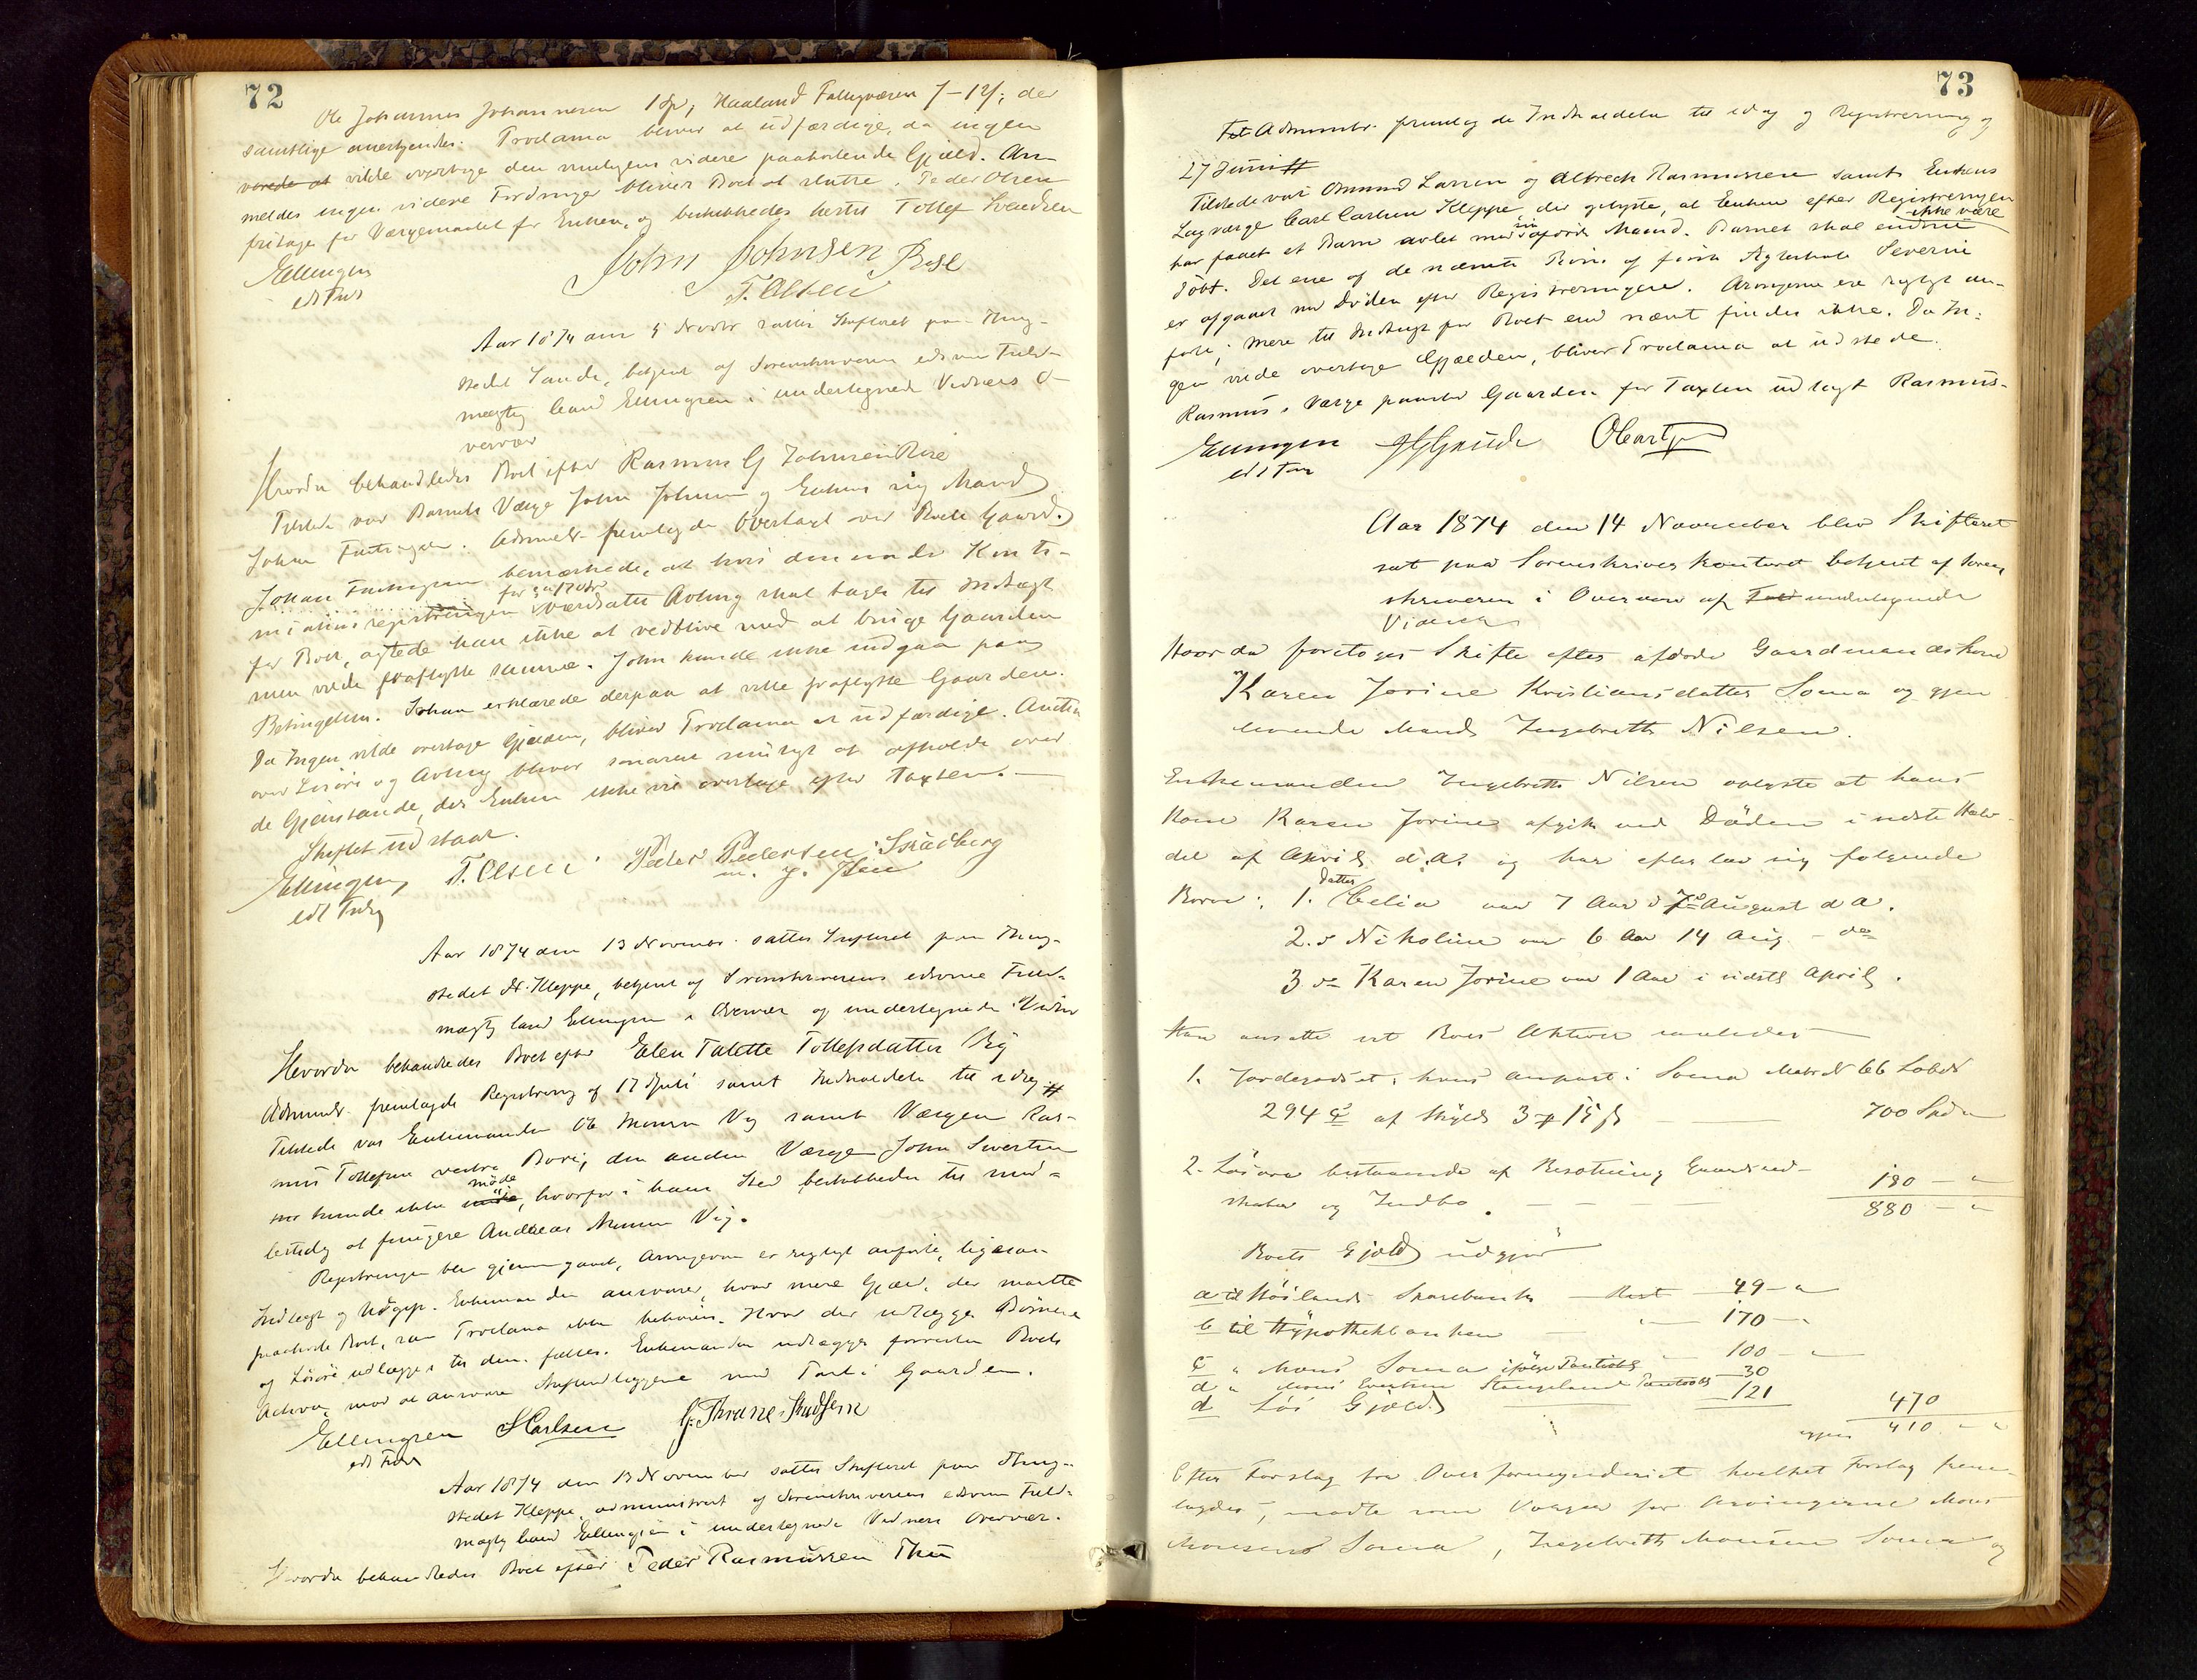 72
Ole Johannes Johannesen 1 Sp, Haaland Fattigvæsen 7-12/; der
samtlige anerkjendtes. Proclama bliver at udfærdige, da ingen
vilde overtage den muligens videre paaheftende Gjæld. An-
meldes ingen videre Fordringer bliver Boet at slutte. Peder Olsen
fritages for Værgemaalet for Enken, og beskikkedes hertil Tollef Svendsen
Ellingsen
John Johnsen
T. Olsen
Aar 1874 den 5 Novbr sattes Skifteret paa Thing-
stedet Sande, betjent af Sorenskriverens edsvorne Fuld-
mægtig Cand Ellingsen i undertegnede Vidners O-
vervær
Hvorda behandledes Boet efter Rasmus G Johnsen
Tilstede var Barnets Værge John Johnsen og Enkens ny Mand
Johan . Adminstr. fremlagde over Boets Gaard.
Johan bemærkede, at hvis den under
registreringen værdsatte Avling skal tages til Indtægt
for Boet, agtede han ikke at vedblive med at bruge Gaarden
men vilde fraflytte samme. John kunde ikke indgaa paa
Betingelsen. Johan erklærede derpaa at ville fraflytte Gaarden.
Da Ingen vilde overtage Gjælden, bliver Proclama at udfærdige. Auction
over Løsøre og Avling bliver snarest muligt at afholde over
de Gjenstande, der Enken ikke vil overtage efter Taxten.
Skiftet udstaar.
Ellingsen T. Olsen Peder Pedersen
Aar 1874 den 13 November sattes Skifteret paa Thing-
stedet N. Kleppe, betjent af Sorenskriverens edsvorne Fuld-
mægtig Cand Ellingsen i Overvær af undertegnede Vidner
Hvorda behandledes Boet efter Elen Talette Tollefsdatter Vig
Adminstr. fremlagde Registrering af 17 Juli samt Indkaldelse til idag
Tilstede var Enkemanden Ole Monsen Vig samt Værgen Ras-
mus Tollefsen vestre Bore; den anden Værge John Sivertsen
kunde ikke møde, hvorfor i hans Sted beskikkedes til mid-
lertidig at fungere Andreas Monsen Vig.
Registreringen blev gjennemgaaet, Arvingerne er rigtigt anførte, ligesaa
Indtægt og Udgift. Enkemanden ansvarer, hvad mere Gjæld, der maatte
paahvile Boet, saa Proclama ikke behøves. Hvad der udlægges Børnene
og Løsøre udlægges til dem fælles. Enkemanden udlægges forresten Boets
Activa, mod at ansvare Skifteudlæggene med Pant i Gaarden.
Ellingsen H Carlsen G. Thrane Knudsen
Aar 1874 den 13 November sattes Skifteret paa Thing-
stedet Kleppe, administreret af Sorenskriverens edsvorne Fuld-
mægtig Cand Ellingsen i undertegnede Vidners Overvær.
Hvorda behandledes Boet efter Peder Rasmussen Thu
73
Adminstr. fremlagde Indkaldelse til idag og Registrering af
27 Juni
Tilstede var Osmund Larsen og Albrecht Rasmussen samt Enkens
Lagværge Carl Carlsen Kleppe, der oplyste, at Enken efter Registreringen
har faaet et Barn avlet med sin afdøde Mand. Barnet skal endnu ikke være
døbt. Det ene af de nævnte Børn af første Ægteskab Severine
er afgaaet ved Døden efter Registreringen. Arvingerne ere rigtigt an-
førte; mere til Indtægt for Boet end nævnt findes ikke. Da In-
gen vilde overtage Gjælden, bliver Proclama at udstede.
Rasmus's Værge paastod Gaarden for Taxten udlagt Rasmus.
Ellingsen
Aar 1874 den 14 November blev Skifteret
sat paa Sorenskriver kontoret betjent af Soren
skriveren i Overvær af undertegnede
Vidner
Hvorda foretoges Skifte efter afdøde Gaardmandskone
Karen Jorine Kristiansdatter Soma og gjen
levende Mand Ingebreth Nilsen.
Enkemanden Ingebreth Nilsen oplyste at hans
Kone Karen Jorine afgik ved Døden i sidste Halv-
del af April d.A. og har efterladt sig følgende
Børn: 1. Datter Celia var 7 Aar d 7de August d A.
2. do Nikoline var 6 Aar 14 Aug - do
3 do Karen Jorine var 1 Aar i sidstl April.
Han ansatte sit Boes Aktiver saaledes
1. Jordegodset, hans anpart i Soma Matr N 66 Løbe N
294 c af Skyld 3 15 700 Spd
2. Løsøre bestaaende af Besætning Gaardsred-
skaber og Indbo. 180 - "
880 - "
Boets Gjæld udgjør
a til Høilands Sparebank - Rest - 49 - "
b til Hypothekbanken - " - 170 - "
c " Mons Soma ifølge Pantobl. " 100 - "
d " Mons Evertsen Stangeland Pantobl 30
d Løs Gjæld 121
470
igjen 410 - "
Efter Forslag fra Overformynderiet hvilket Forslag frem-
lagdes, mødte som Værger for Arvingerne Mons
Monsen Soma, Ingebreth Monsen Soma og